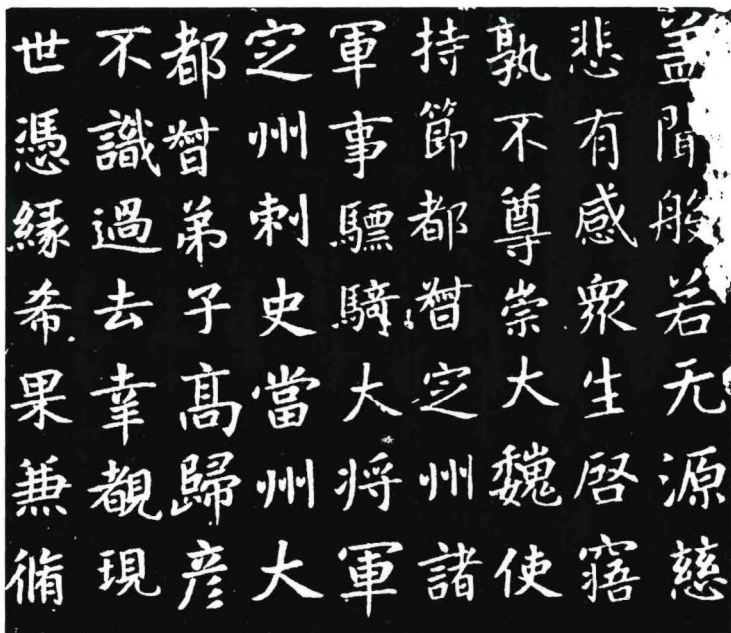 盖聞般若无源慈
悲有感衆生啓寤
孰不尊崇大魏使
持節都督定州諸
軍事驃騎大将軍
定州刺史當州大
都督弟子髙歸彦
不識過去幸覩現
世憑緣希果兼脩